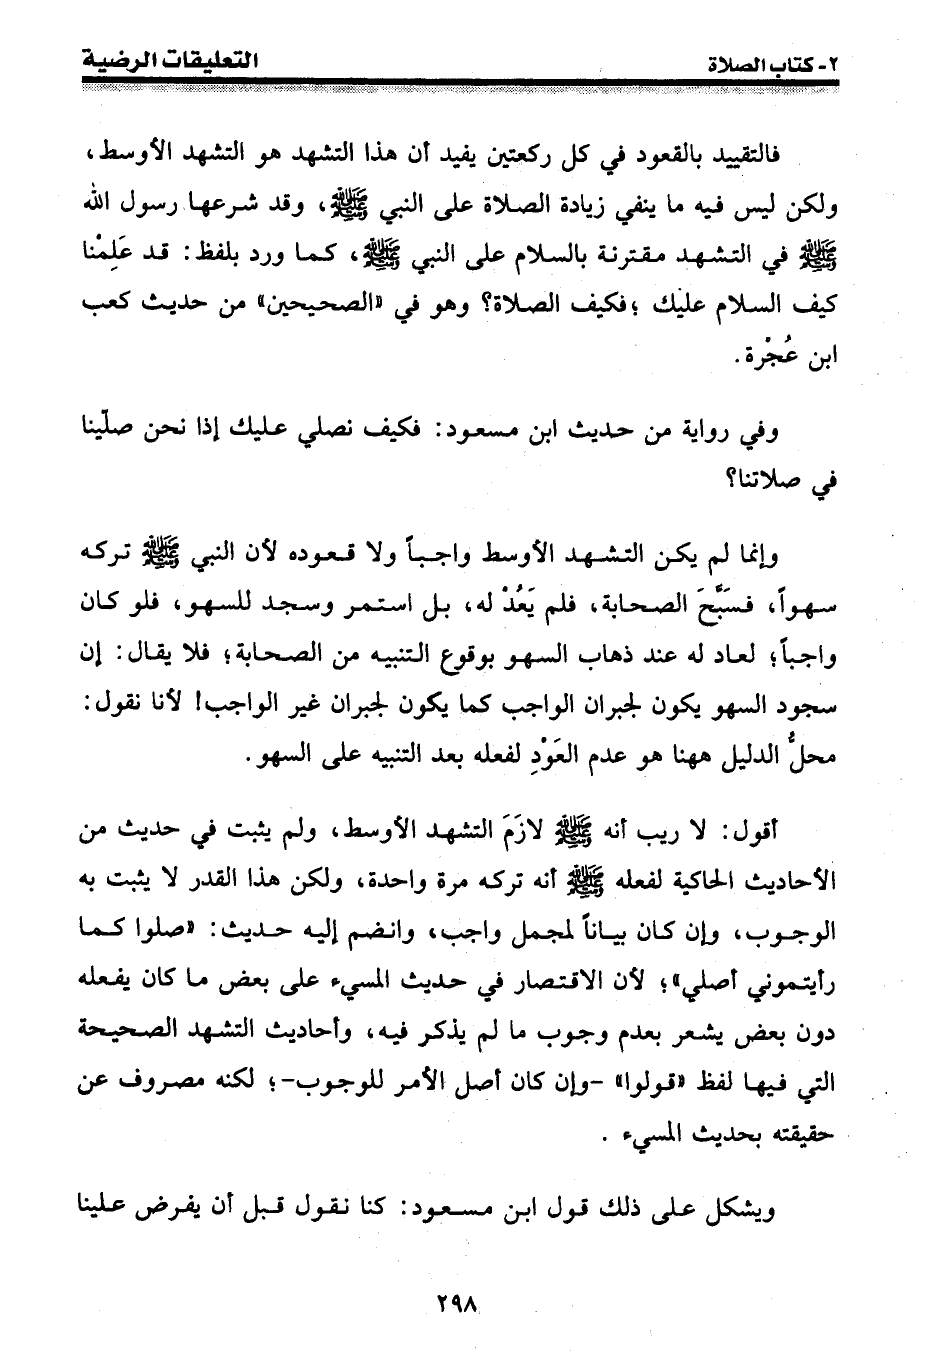 ٢- كتاب الصلاة
التعليقات الرضية
فالتقييد بالقعود في كل ركعتين يفيد أن هذا التشهد هو التشهد الأوسط،
ولكن ليس فيه ما ينفي زيادة الصلاة على النبي ﷺ، وقد شرعها رسول الله
ﷺ في التشهد مقترنة بالسلام على النبي ﷺ، كما ورد بلفظ: قد عَلِمْنا
كيف السلام عليك ؛فكيف الصلاة؟ وهو في «الصحيحين» من حديث كعب
ابن عُجْرة.
وفي رواية من حديث ابن مسعود: فكيف نصلي عليك إذا نحن صلّينا
في صلاتنا؟
وإنما لم يكن التشهد الأوسط واجباً ولا قعوده لأن النبي ﷺ تركه
سهواً، فسَبَّحَ الصحابة، فلم يَعُدْ له، بل استمر وسجد للسهو، فلو كان
واجباً؛ لعاد له عند ذهاب السهو بوقوع التنبيه من الصحابة؛ فلا يقال: إن
سجود السهو يكون لجبران الواجب كما يكون لجبران غير الواجب! لأنا نقول:
محلُّ الدليل ههنا هو عدم العَوْدِ لفعله بعد التنبيه على السهو.
أقول: لا ريب أنه ﷺ لازَمَ التشهد الأوسط، ولم يثبت في حديث من
الأحاديث الحاكية لفعله ﷺ أنه تركه مرة واحدة، ولكن هذا القدر لا يثبت به
الوجوب، وإن كان بياناً لمجمل واجب، وانضم إليه حديث: «صلوا كما
رأيتموني أصلي»؛ لأن الاقتصار في حديث المسيء على بعض ما كان يفعله
دون بعض يشعر بعدم وجوب ما لم يذكر فيه، وأحاديث التشهد الصحيحة
التي فيها لفظ «قولوا» -وإن كان أصل الأمر للوجوب-؛ لكنه مصروف عن
حقيقته بحديث المسيء .
ويشكل على ذلك قول ابن مسعود: كنا نقول قبل أن يفرض علينا
٢٩٨